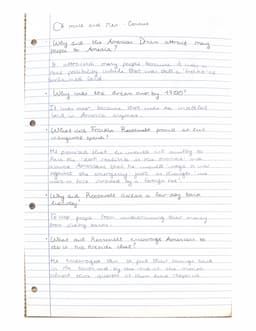 Of mice and Men - Context
• Why did the American Dream attract many
people to America?
It attracted many people because it was a
• Why was the dream over by 1900?
It was over because there was no
land in America anymore.
• What did Franklin Roosevelt promise at his
inaugural speech?
He promised that he would act quickly to
face the 'dark realities of the moment' and
assured Americans that he would 'wage a war
against the emergency' just as though 'we
were in fact invaded by a foreign foe'.
• Why did Roosevelt declare a four-day bank
holiday?
To stop people from withdrawing their money
from banks.
• What did Roosevelt encourage Americans to
do in his fireside chat?
He encouraged them to put their savings back
in the banks and by the end of the month
almost three quarters of them had reopened.